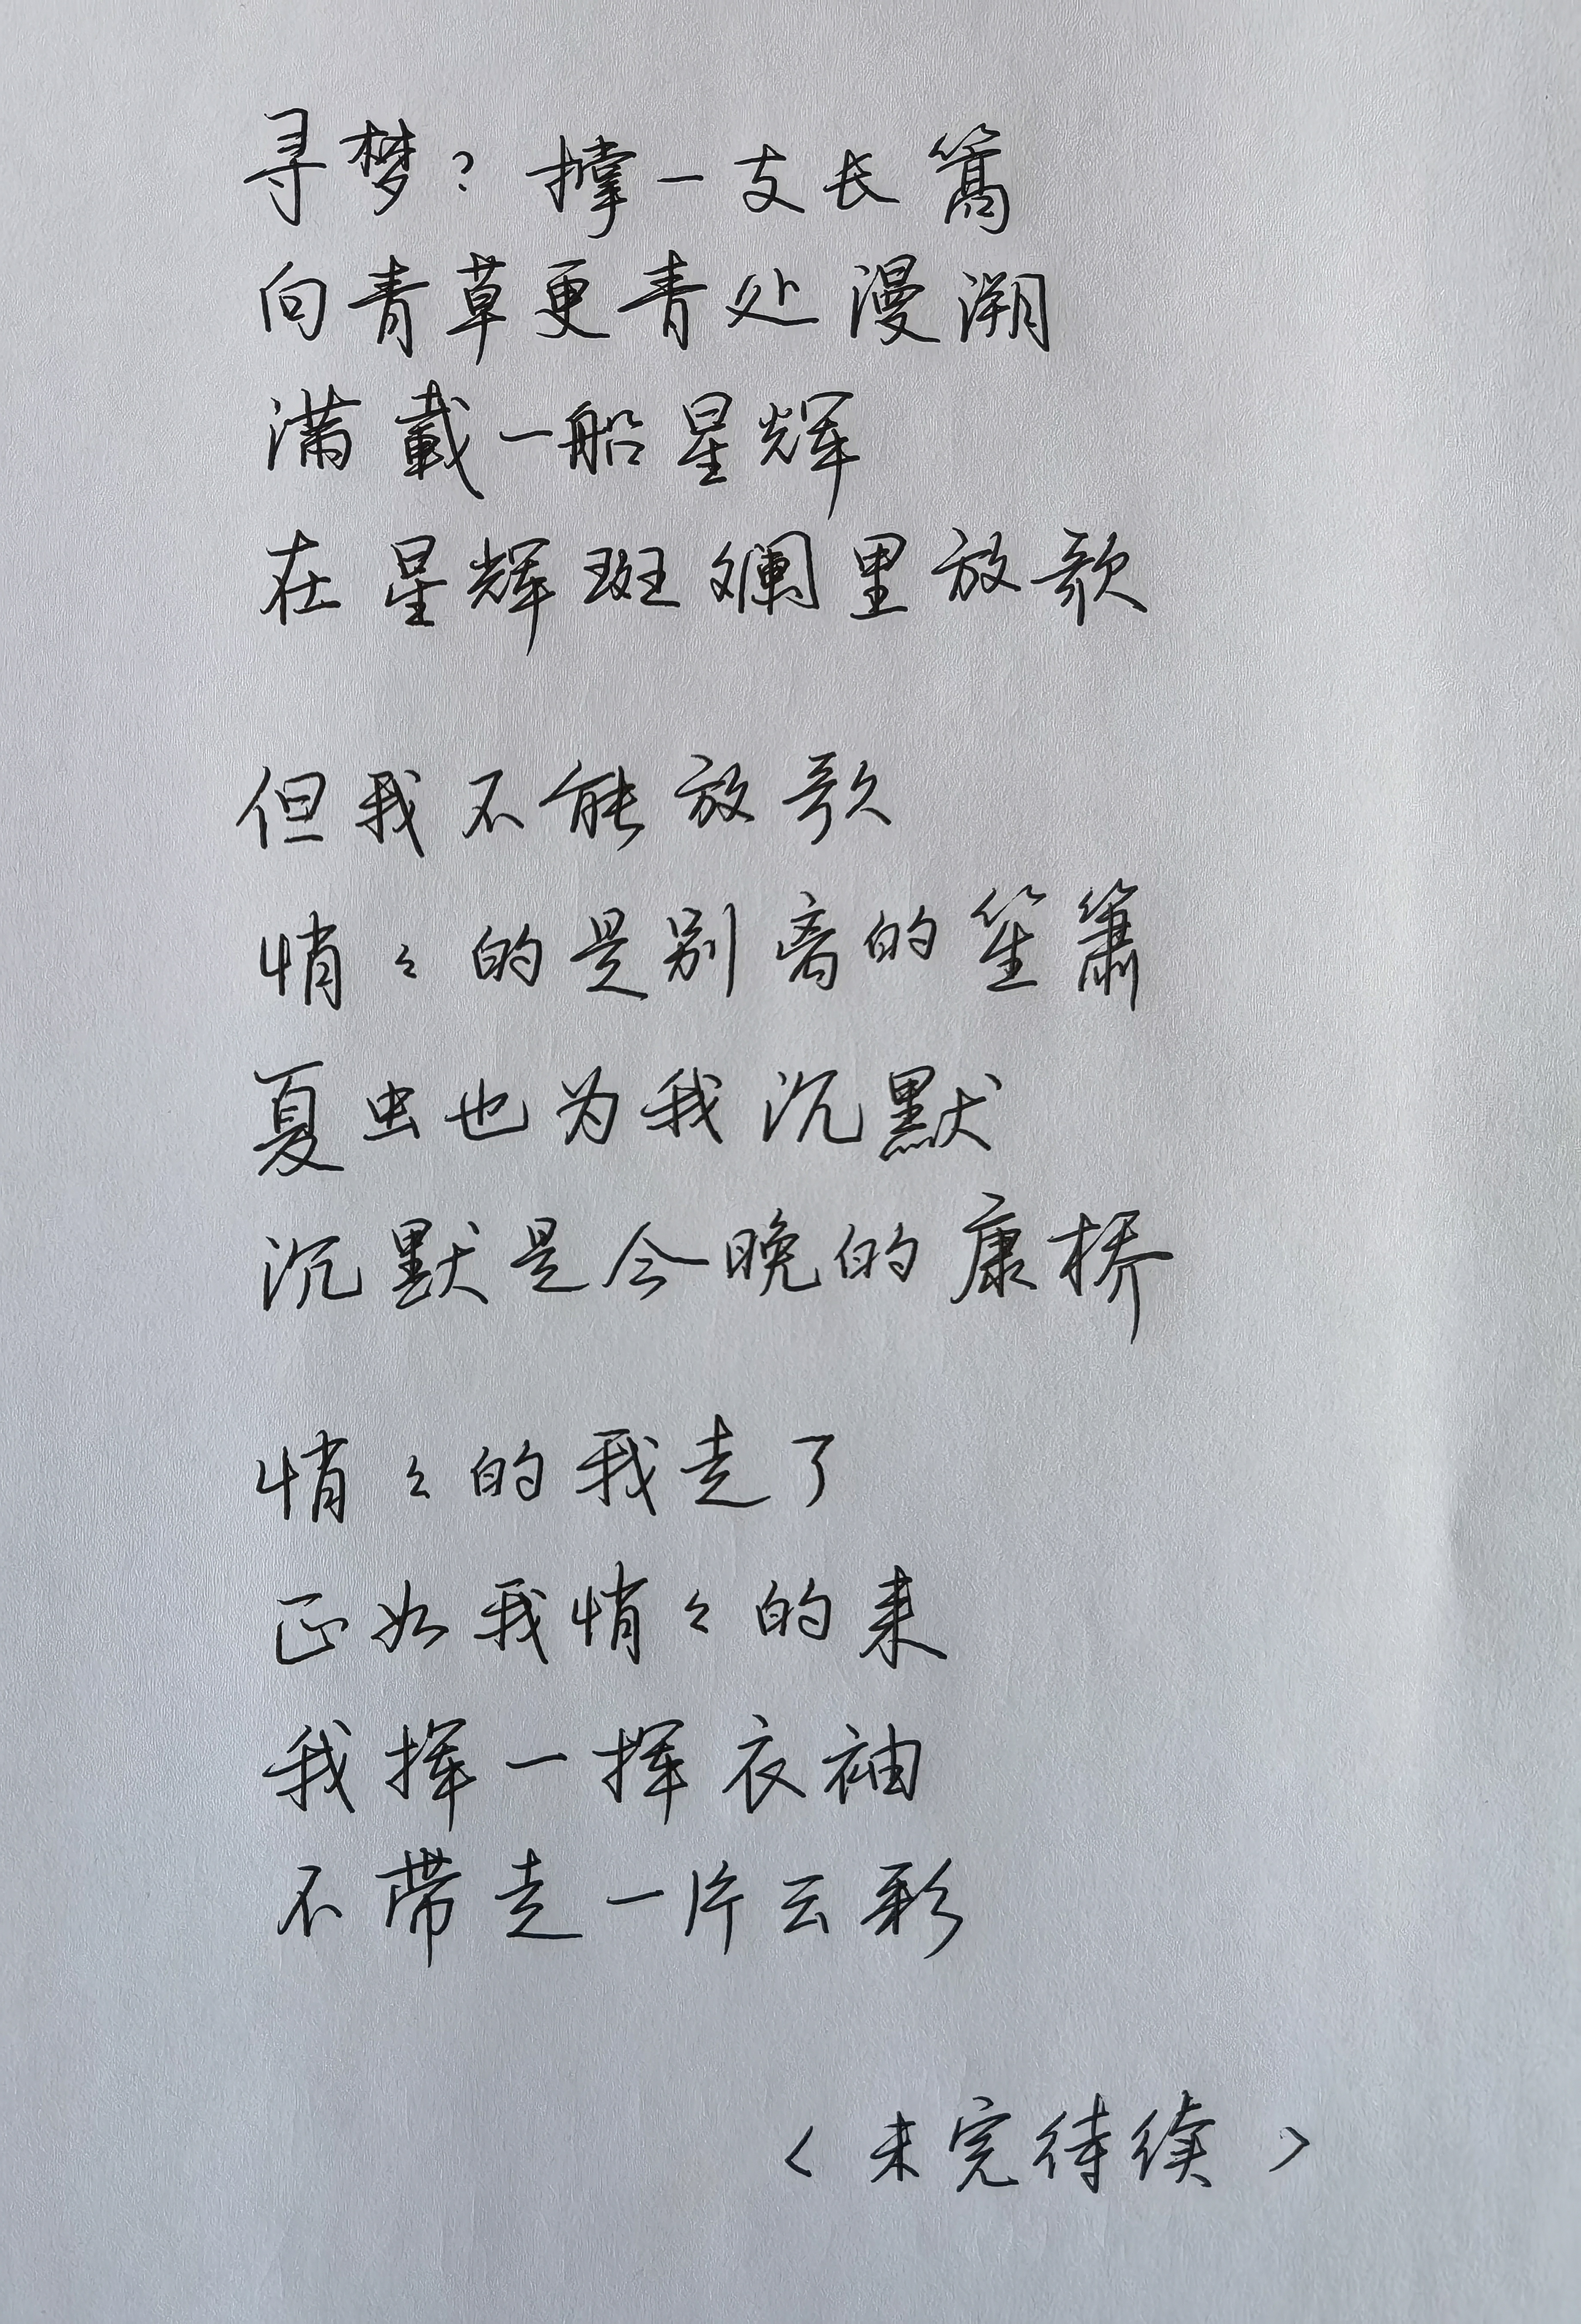 寻梦?撑一支长篙
向青草更青处漫溯
满载一船星辉
在星辉斑斓里放歌
但我不能放歌
悄々的是别离的笙箫
夏虫也为我沉默
沉默是今晚的康桥
悄々的我走了
正如我悄々的来
我挥一挥衣袖
不带走一片云彩
<未完待续>